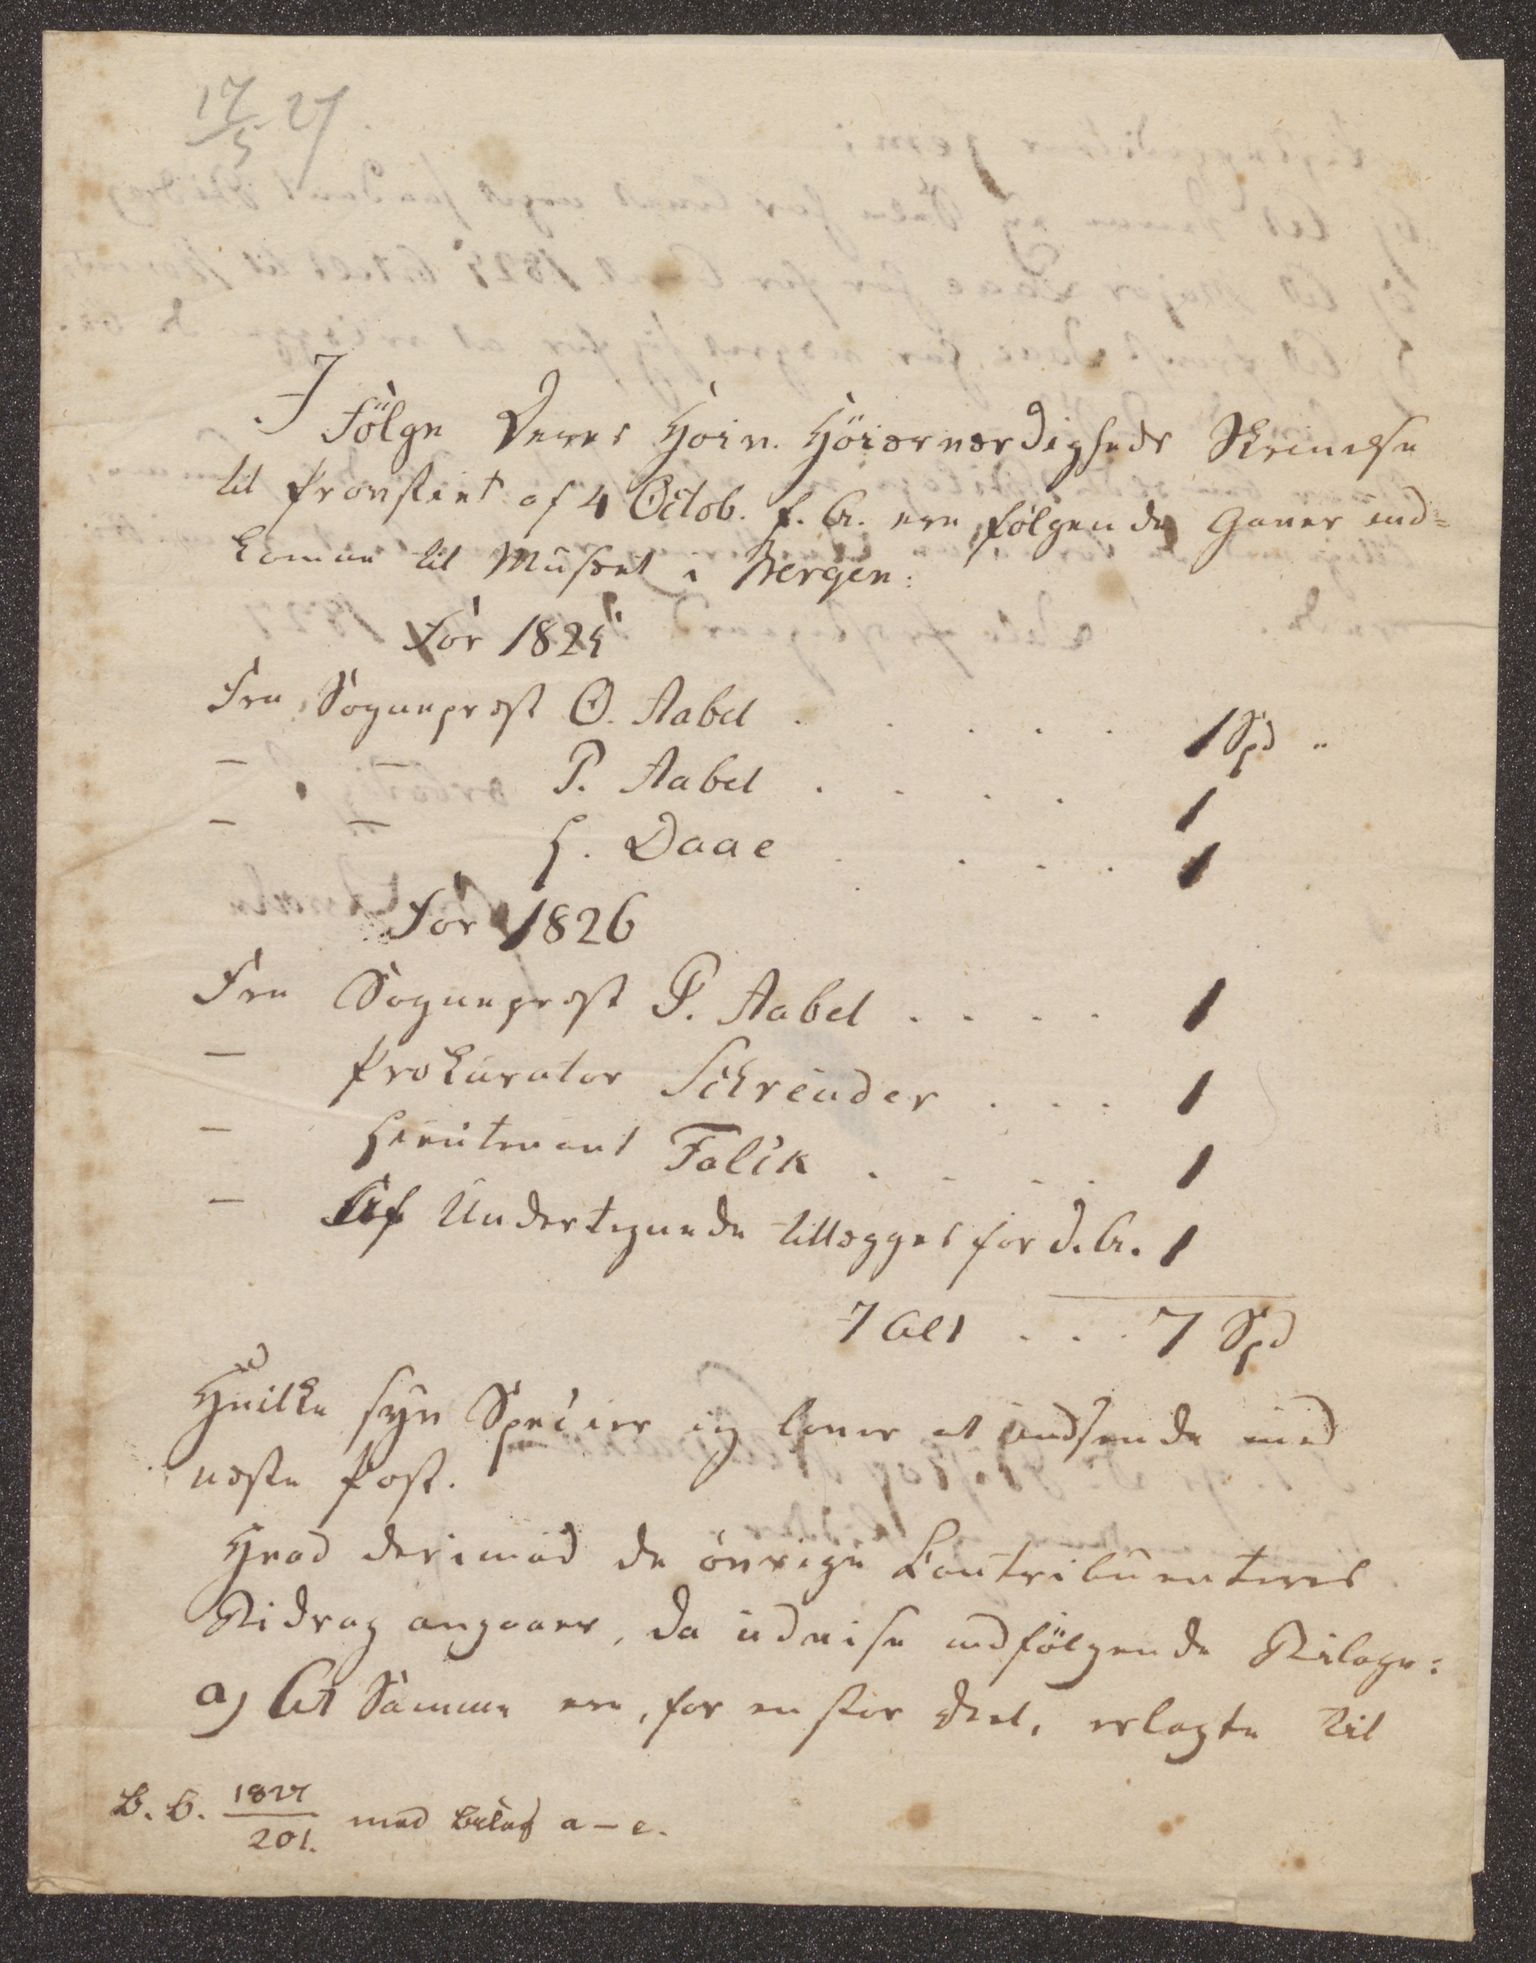 17/5 27.
I
Følge Deres Høiv. Høiærværdigheds Skrivelse
til Provstiet af 4 Octob. f. A. ere følgende Gaver ind=
komne til Musæet i Bergen:
For 1825
Fra Sogneprest O. Aabel . . . . . 1 Spd "
— — P. Aabel . . . . 1
— — H. Daae . . . . 1
For 1826
Fra Sogneprest P. Aabel . . . . 1
— Prokurator Schreuder . . . 1
— Lieutenant Falck . . . . 1
— Af Undertegnede tillægges for d. A. 1
I Alt . . . 7 Spd
Hvilke syv Specier jeg lover at indsende med
næste Post.
Hvad derimod de øvrige Contribuenteres
Bidrag angaaer, da udvise medfølgende Bilage:
a) At Samme ere, for en stor Deel, erlagte til
B. B. 1827/201. med bilag a–e.